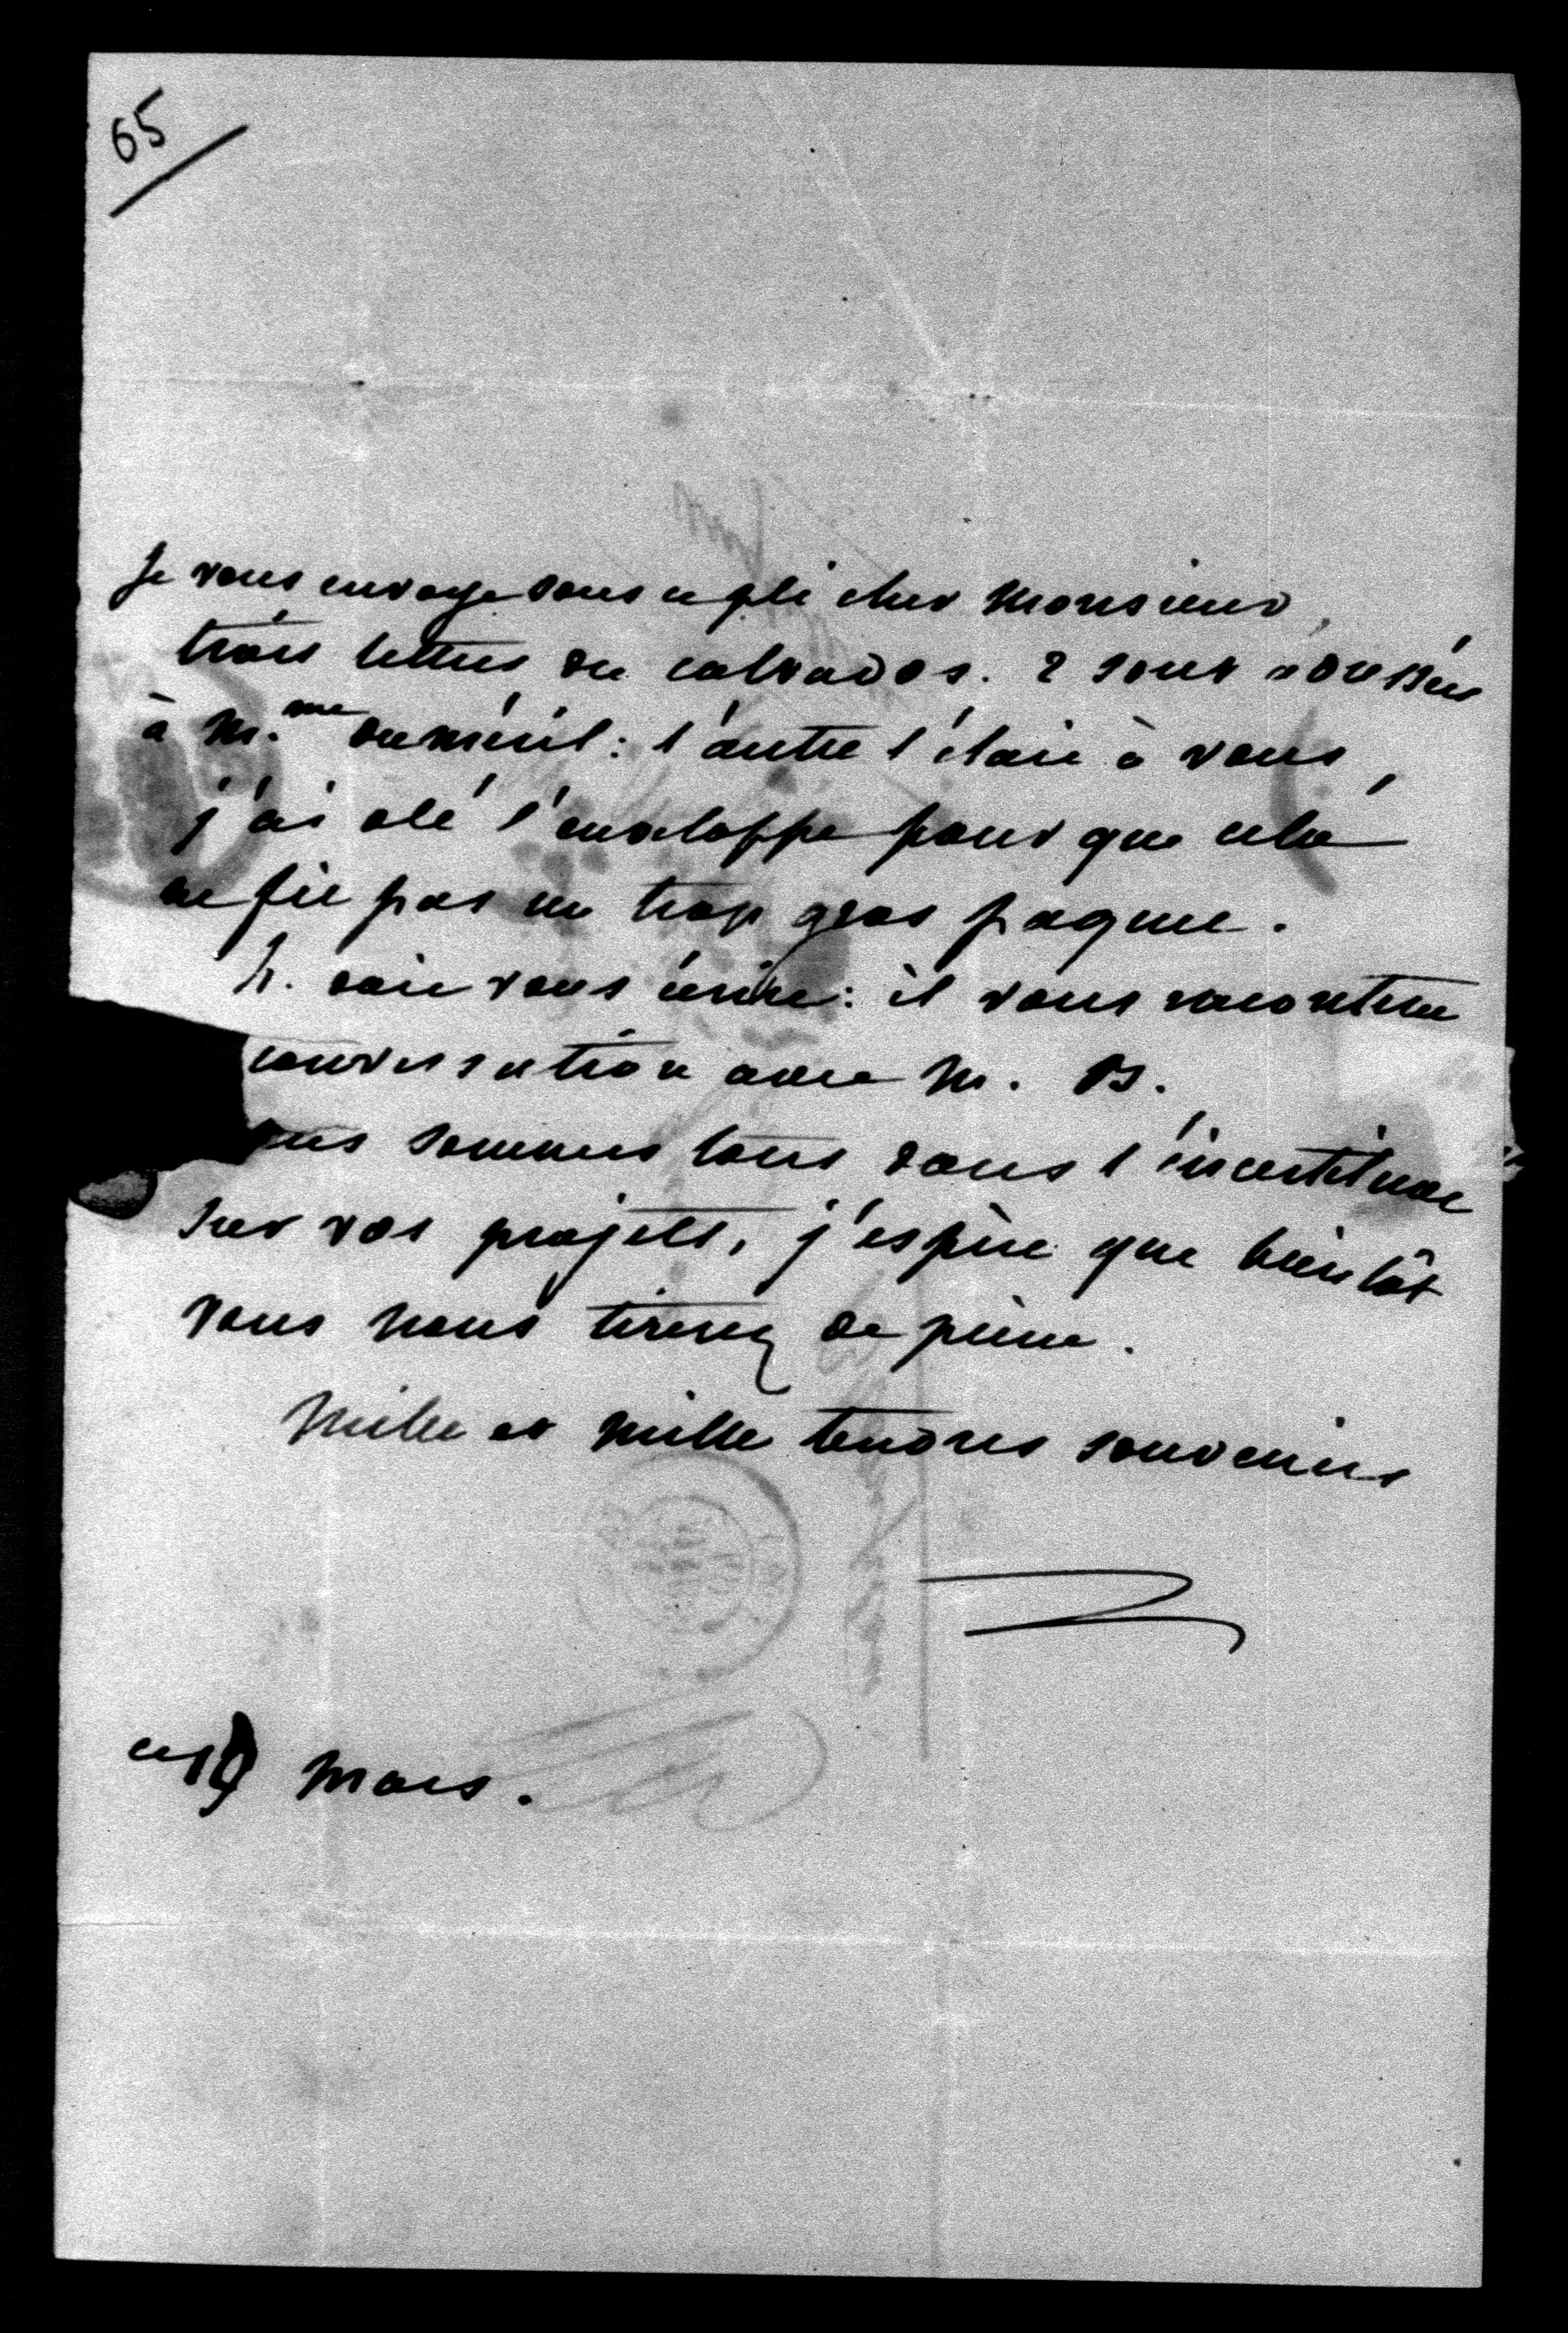 65
Je vous envoye sous ce pli cher Monsieur,
trois lettres du calvados. 2 sont adressées
à M.me duMéril: l'autre l'étoit à vous,
j'ai oté l'enveloppe pour que cela
ne fit pas un trop gros paquet.
h. doit vous écrire: il vous racontera
conversation avec M. B.
ous sommes tous dans l'incertitude
sur vos projets, j'espère que bientôt
vous nous tirerez de peine.
Mille et mille tendres souvenirs
ce 19 Mars.